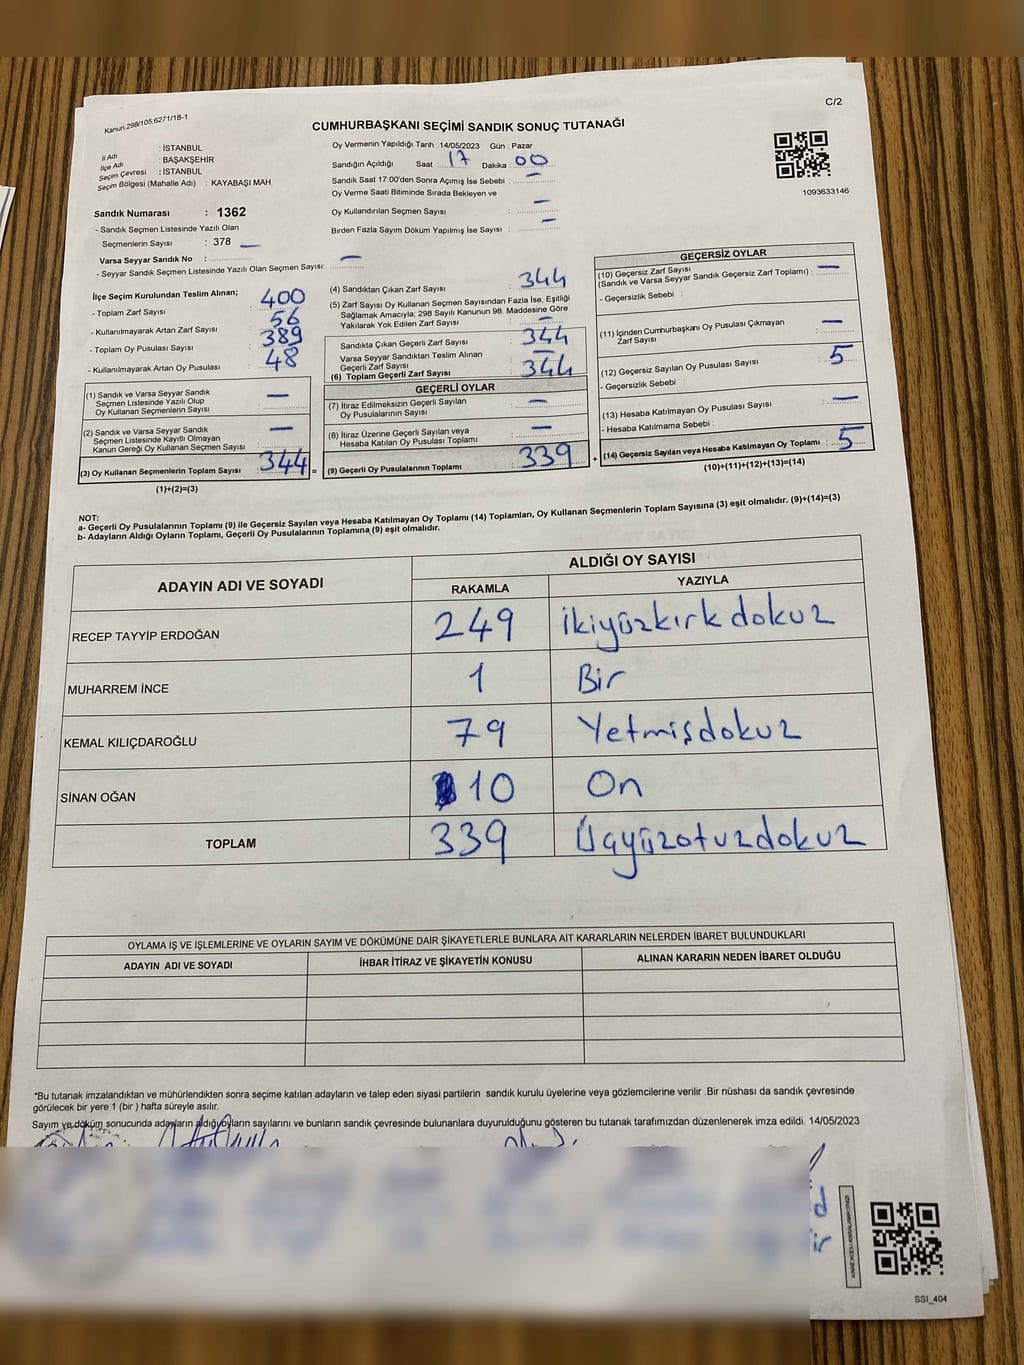 C/2
Kanun,298/105,6271/18-1
CUMHURBAŞKANI SEÇİMİ SANDIK SONUÇ TUTANAĞI
İl Adı : İSTANBUL
İlçe Adı : BAŞAKŞEHİR
Seçim Çevresi : İSTANBUL
Seçim Bölgesi (Mahalle Adı) : KAYABAŞI MAH
Sandık Numarası : 1362
- Sandık Seçmen Listesinde Yazılı Olan
Seçmenlerin Sayısı : 378 —
Varsa Seyyar Sandık No :
- Seyyar Sandık Seçmen Listesinde Yazılı Olan Seçmen Sayısı: —
Oy Vermenin Yapıldığı Tarih : 14/05/2023 Gün : Pazar
Sandığın Açıldığı Saat : 17 Dakika : 00
Sandık Saat 17:00'den Sonra Açımış İse Sebebi : —
Oy Verme Saati Bitiminde Sırada Bekleyen ve
Oy Kullandırılan Seçmen Sayısı : —
Birden Fazla Sayım Döküm Yapılmış İse Sayısı : —
1093633146
İlçe Seçim Kurulundan Teslim Alınan;
- Toplam Zarf Sayısı : 400
- Kullanılmayarak Artan Zarf Sayısı : 56
- Toplam Oy Pusulası Sayısı : 389
- Kullanılmayarak Artan Oy Pusulası : 48
(1) Sandık ve Varsa Seyyar Sandık
Seçmen Listesinde Yazılı Olup
Oy Kullanan Seçmenlerin Sayısı : —
(2) Sandık ve Varsa Seyyar Sandık
Seçmen Listesinde Kayıtlı Olmayan
Kanun Gereği Oy Kullanan Seçmen Sayısı : —
(3) Oy Kullanan Seçmenlerin Toplam Sayısı : 344 =
(1)+(2)=(3)
(4) Sandıktan Çıkan Zarf Sayısı : 344
(5) Zarf Sayısı Oy Kullanan Seçmen Sayısından Fazla İse, Eşitliği
Sağlamak Amacıyla; 298 Sayılı Kanunun 98. Maddesine Göre
Yakılarak Yok Edilen Zarf Sayısı : —
Sandıkta Çıkan Geçerli Zarf Sayısı : 344
Varsa Seyyar Sandıktan Teslim Alınan
Geçerli Zarf Sayısı : —
(6) Toplam Geçerli Zarf Sayısı : 344
GEÇERLİ OYLAR
(7) İtiraz Edilmeksizin Geçerli Sayılan
Oy Pusulalarının Sayısı : —
(8) İtiraz Üzerine Geçerli Sayılan veya
Hesaba Katılan Oy Pusulası Toplamı : —
(9) Geçerli Oy Pusulalarının Toplamı : 339 +
GEÇERSİZ OYLAR
(10) Geçersiz Zarf Sayısı
(Sandık ve Varsa Seyyar Sandık Geçersiz Zarf Toplamı) : —
- Geçersizlik Sebebi :
(11) İçinden Cumhurbaşkanı Oy Pusulası Çıkmayan
Zarf Sayısı : —
(12) Geçersiz Sayılan Oy Pusulası Sayısı : 5
- Geçersizlik Sebebi :
(13) Hesaba Katılmayan Oy Pusulası Sayısı : —
- Hesaba Katılmama Sebebi :
(14) Geçersiz Sayılan veya Hesaba Katılmayan Oy Toplamı : 5
(10)+(11)+(12)+(13)=(14)
NOT:
a- Geçerli Oy Pusulalarının Toplamı (9) ile Geçersiz Sayılan veya Hesaba Katılmayan Oy Toplamı (14) Toplamları, Oy Kullanan Seçmenlerin Toplam Sayısına (3) eşit olmalıdır. (9)+(14)=(3)
b- Adayların Aldığı Oyların Toplamı, Geçerli Oy Pusulalarının Toplamına (9) eşit olmalıdır.
ADAYIN ADI VE SOYADI
ALDIĞI OY SAYISI
RAKAMLA YAZIYLA
RECEP TAYYİP ERDOĞAN 249 ikiyüzkırk dokuz
MUHARREM İNCE 1 Bir
KEMAL KILIÇDAROĞLU 79 Yetmişdokuz
SİNAN OĞAN 10 On
TOPLAM 339 Üçyüzotuzdokuz
OYLAMA İŞ VE İŞLEMLERİNE VE OYLARIN SAYIM VE DÖKÜMÜNE DAİR ŞİKAYETLERLE BUNLARA AİT KARARLARIN NELERDEN İBARET BULUNDUKLARI
ADAYIN ADI VE SOYADI İHBAR İTİRAZ VE ŞİKAYETİN KONUSU ALINAN KARARIN NEDEN İBARET OLDUĞU
*Bu tutanak imzalandıktan ve mühürlendikten sonra seçime katılan adayların ve talep eden siyasi partilerin sandık kurulu üyelerine veya gözlemcilerine verilir .Bir nüshası da sandık çevresinde
görülecek bir yere 1 (bir ) hafta süreyle asılır.
Sayım ve döküm sonucunda adayların aldığı oyların sayılarını ve bunların sandık çevresinde bulunanlara duyurulduğunu gösteren bu tutanak tarafımızdan düzenlenerek imza edildi. 14/05/2023
SSI_404